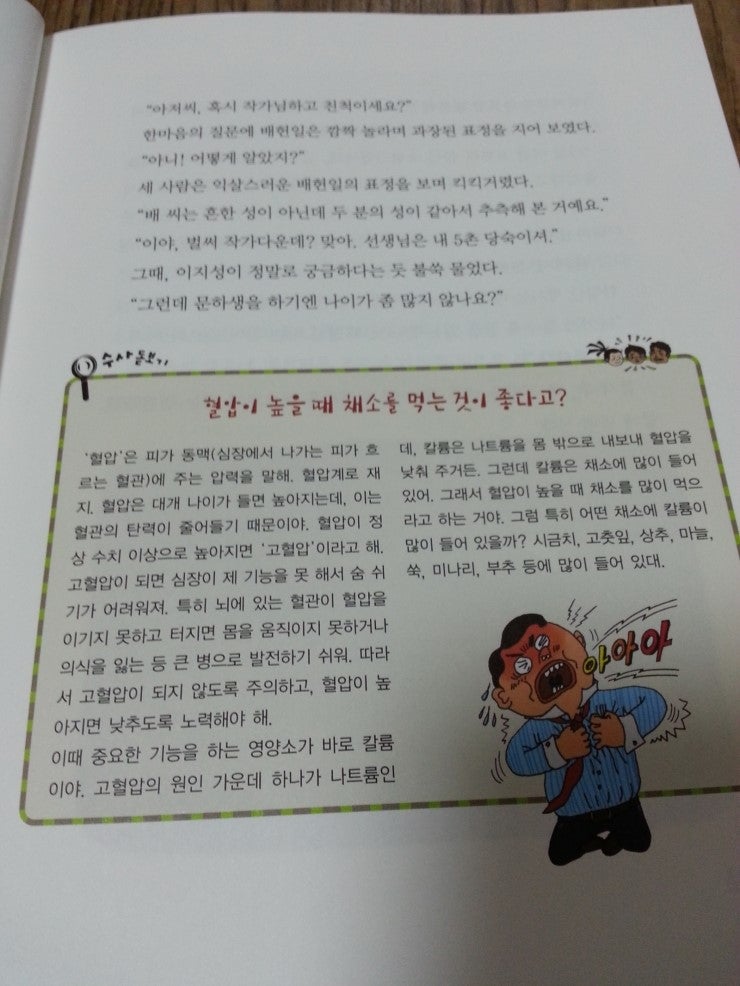 “아저씨, 혹시 작가님하고 친척이세요?”
한마음의 질문에 배헌일은 깜짝 놀라며 과장된 표정을 지어 보였다.
“아니! 어떻게 알았지?”
세 사람은 익살스러운 배헌일의 표정을 보며 킥킥거렸다.
“배 씨는 흔한 성이 아닌데 두 분의 성이 같아서 추측해 본 거예요.”
“이야, 벌써 작가다운데? 맞아. 선생님은 내 5촌 당숙이셔.”
그때, 이지성이 정말로 궁금하다는 듯 불쑥 물었다.
“그런데 문하생을 하기엔 나이가 좀 많지 않나요?”
수사돋보기
혈압이 높을 때 채소를 먹는 것이 좋다고?
‘혈압’은 피가 동맥(심장에서 나가는 피가 흐
르는 혈관)에 주는 압력을 말해. 혈압계로 재
지. 혈압은 대개 나이가 들면 높아지는데, 이는
혈관의 탄력이 줄어들기 때문이야. 혈압이 정
상 수치 이상으로 높아지면 ‘고혈압’이라고 해.
고혈압이 되면 심장이 제 기능을 못 해서 숨 쉬
기가 어려워져. 특히 뇌에 있는 혈관이 혈압을
이기지 못하고 터지면 몸을 움직이지 못하거나
의식을 잃는 등 큰 병으로 발전하기 쉬워. 따라
서 고혈압이 되지 않도록 주의하고, 혈압이 높
아지면 낮추도록 노력해야 해.
이때 중요한 기능을 하는 영양소가 바로 칼륨
이야. 고혈압의 원인 가운데 하나가 나트륨인
데, 칼륨은 나트륨을 몸 밖으로 내보내 혈압을
낮춰 주거든. 그런데 칼륨은 채소에 많이 들어
있어. 그래서 혈압이 높을 때 채소를 많이 먹으
라고 하는 거야. 그럼 특히 어떤 채소에 칼륨이
많이 들어 있을까? 시금치, 고춧잎, 상추, 마늘,
쑥, 미나리, 부추 등에 많이 들어 있대.
아아아